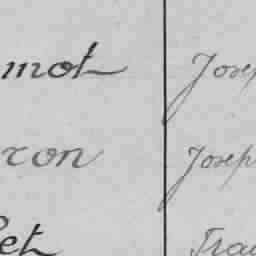 mot Josep
ron Josep
et Fra